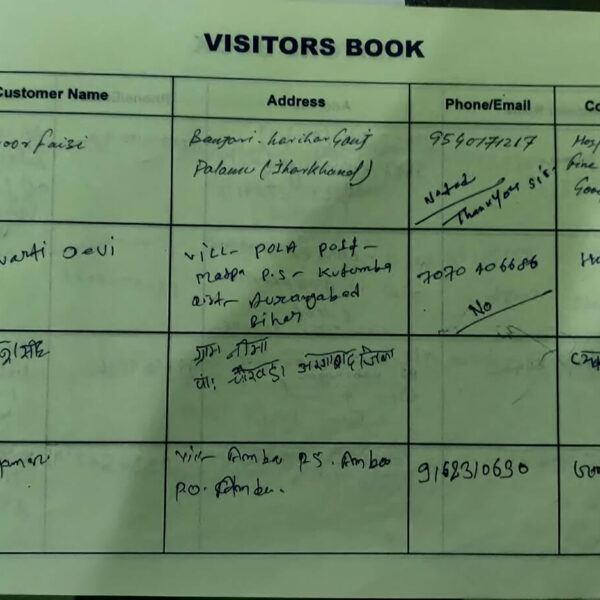 VISITORS BOOK
Customer Name
Address
Phone/Email
Co
oor faizi
Banjari. harihar Ganj
Palamu (Jharkhand)
9540171217
Noted
Thank you sis.
Hosp
fine
Good
Devi
vill- POLA post-
P.S- Kutumba
dist- Aurangabad
Bihar
7070 406686
No
Ho
ग्राम नीमा
जिला
vill- Amba P.S. Amba
P.O. Amba.
9162310690